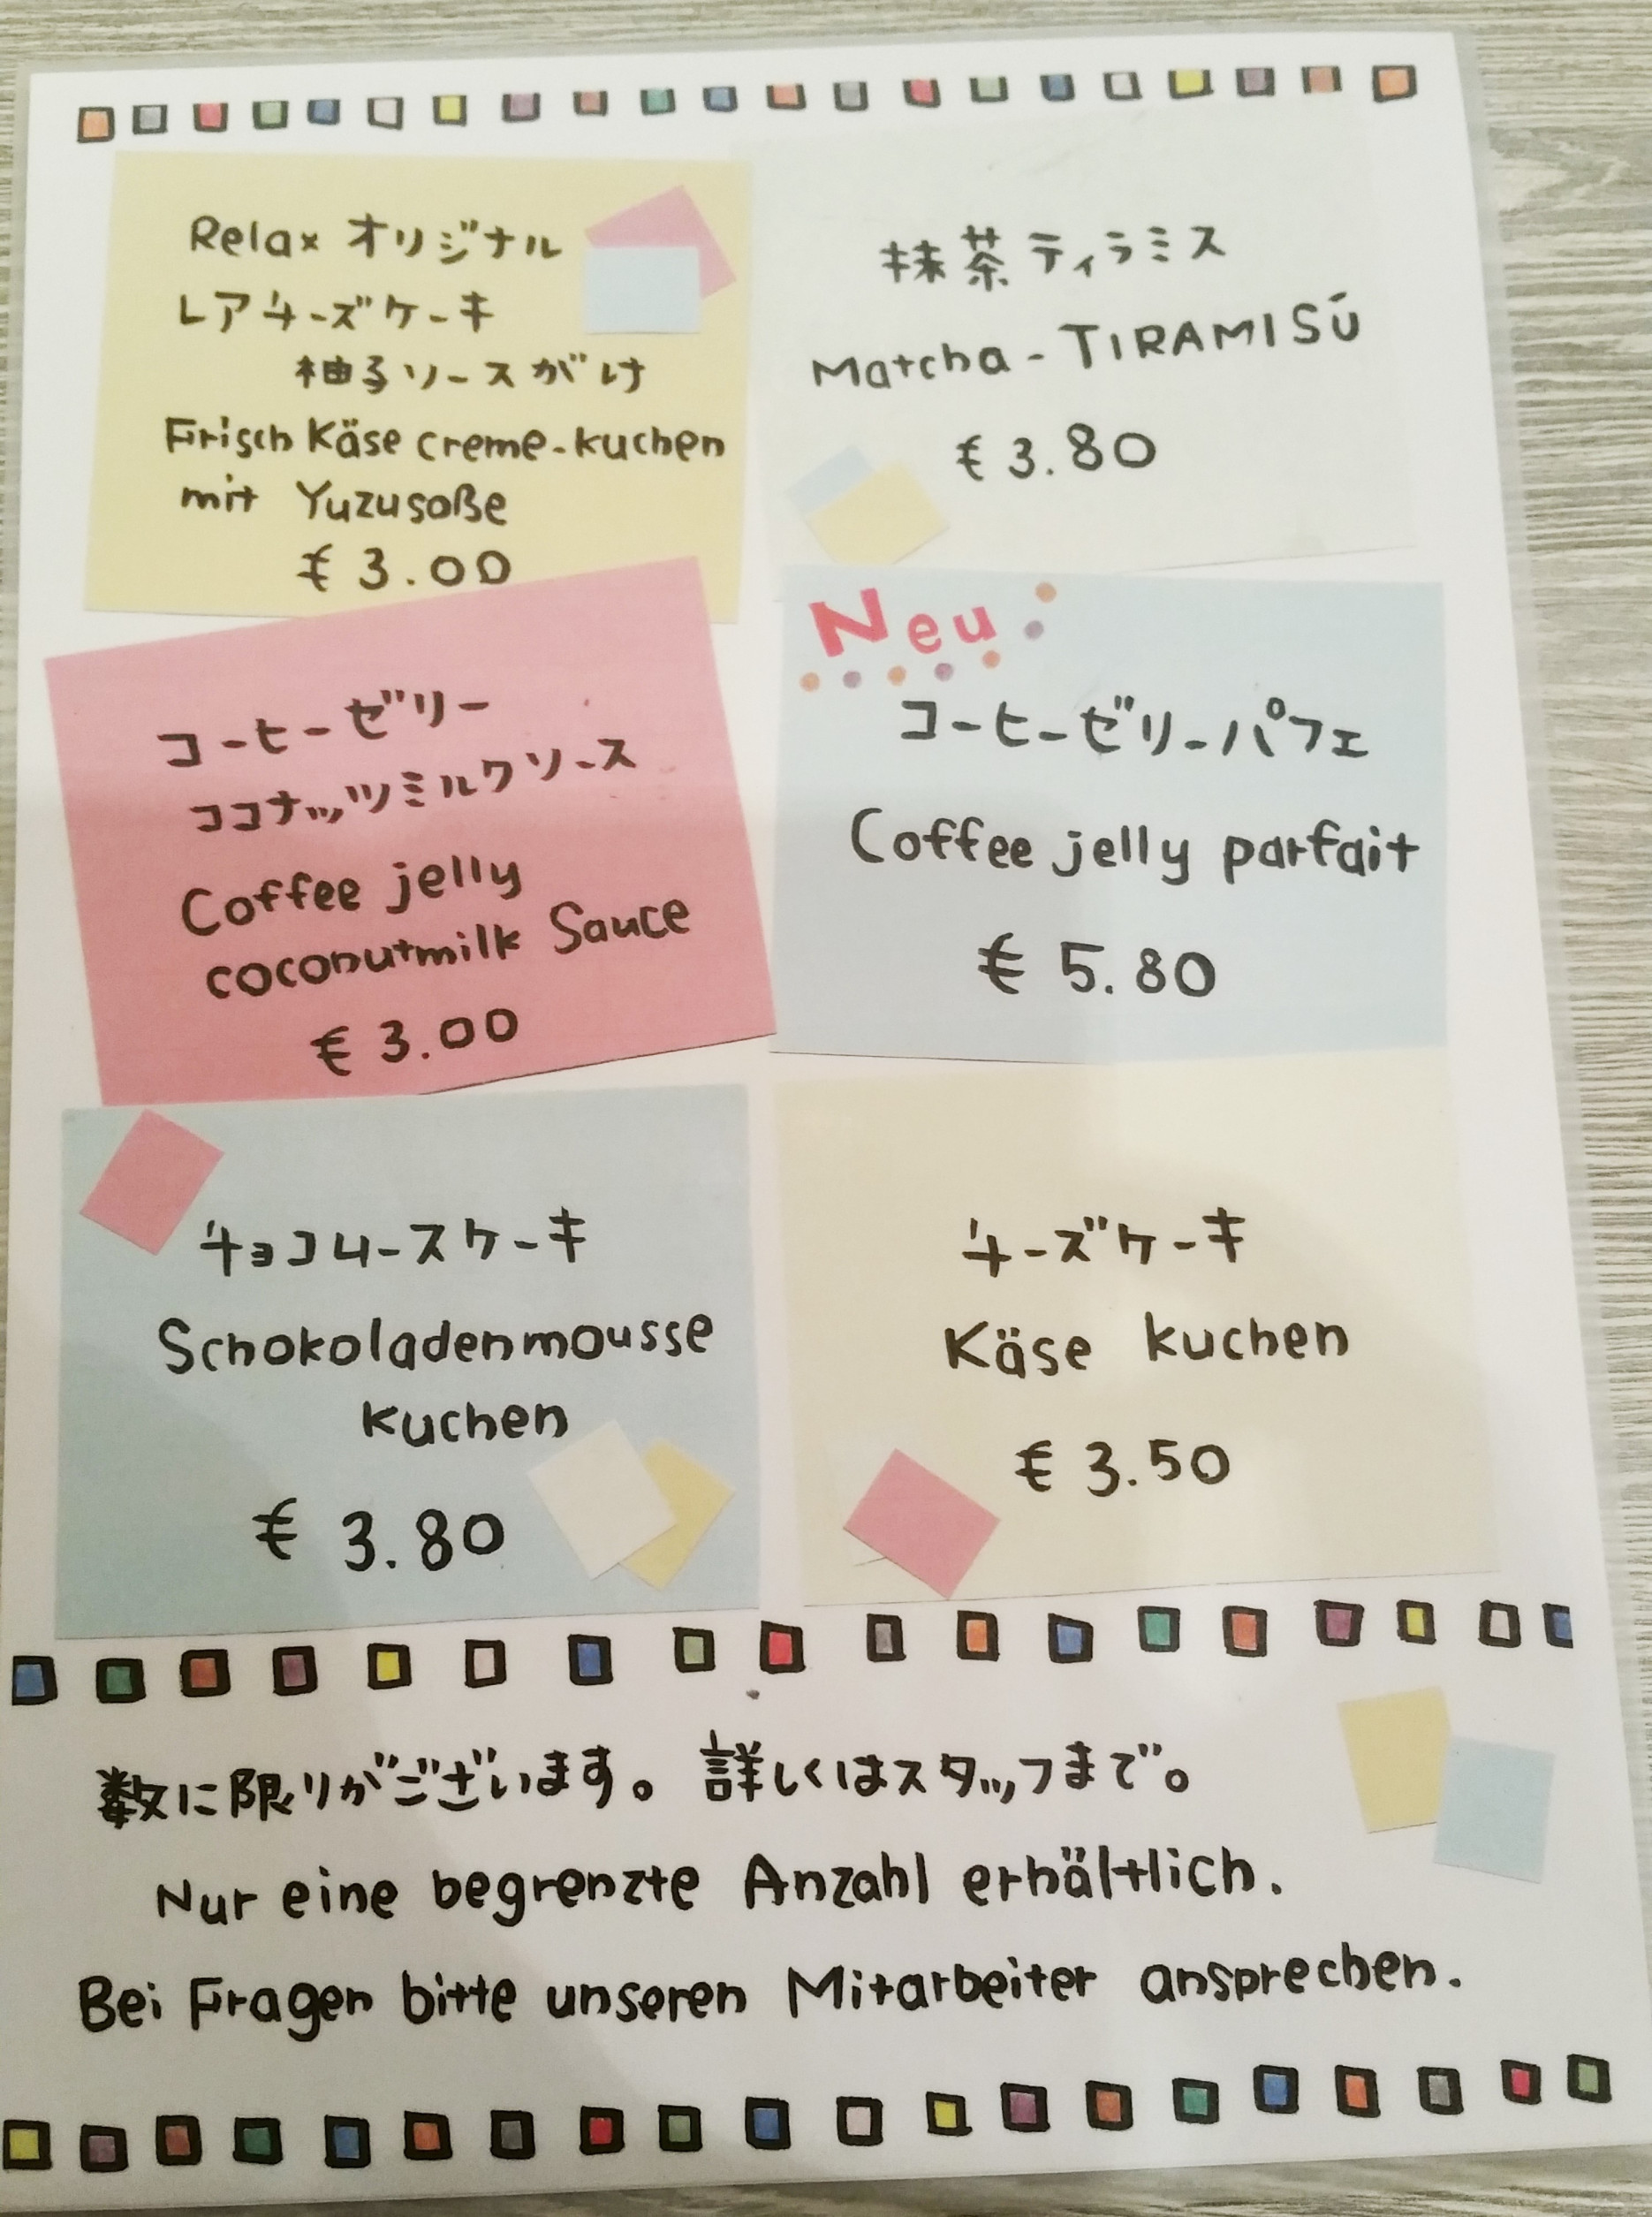 Relax オリジナル
レアチーズケーキ
柚子ソースがけ
Frisch Käse creme-kuchen
mit Yuzusoße
€ 3.00
抹茶ティラミス
Matcha - TIRAMISÚ
€ 3.80
コーヒーゼリー
ココナッツミルクソース
Coffee jelly
coconutmilk Sauce
€ 3.00
Neu
コーヒーゼリーパフェ
Coffee jelly parfait
€ 5.80
チョコムースケーキ
Schokoladenmousse
kuchen
€ 3.80
チーズケーキ
Käse kuchen
€ 3.50
数に限りがございます。詳しくはスタッフまで。
Nur eine begrenzte Anzahl erhältlich.
Bei Fragen bitte unseren Mitarbeiter ansprechen.